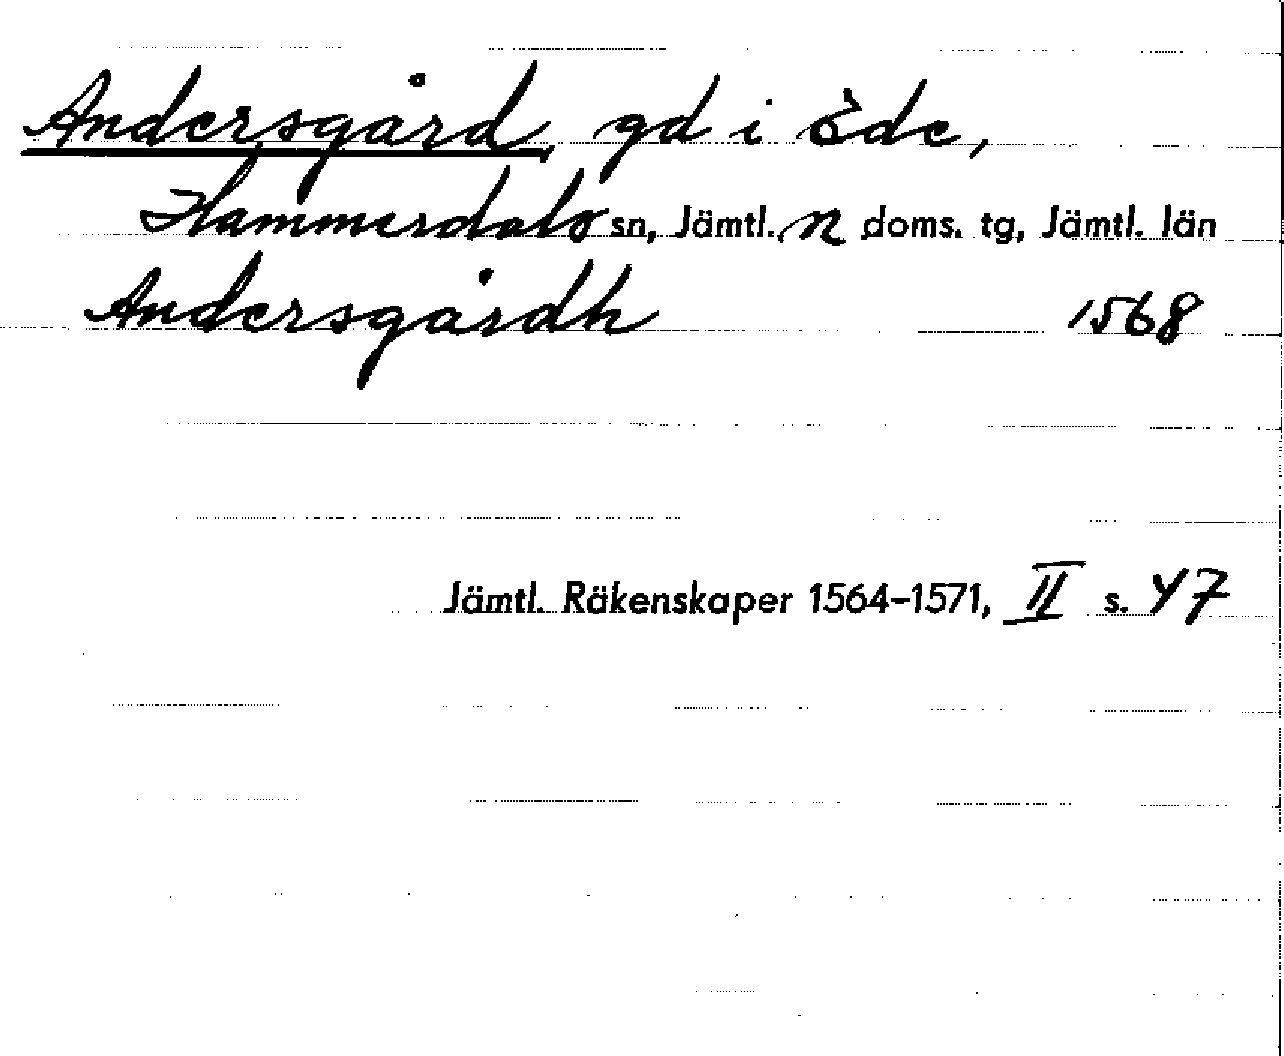 Andersgård, gd i Öde,
Hammerdals sn, Jämtl. n doms. tg, Jämtl. län
Andersgårdh 1568
Jämtl. Räkenskaper 1564–1571, II s. 47